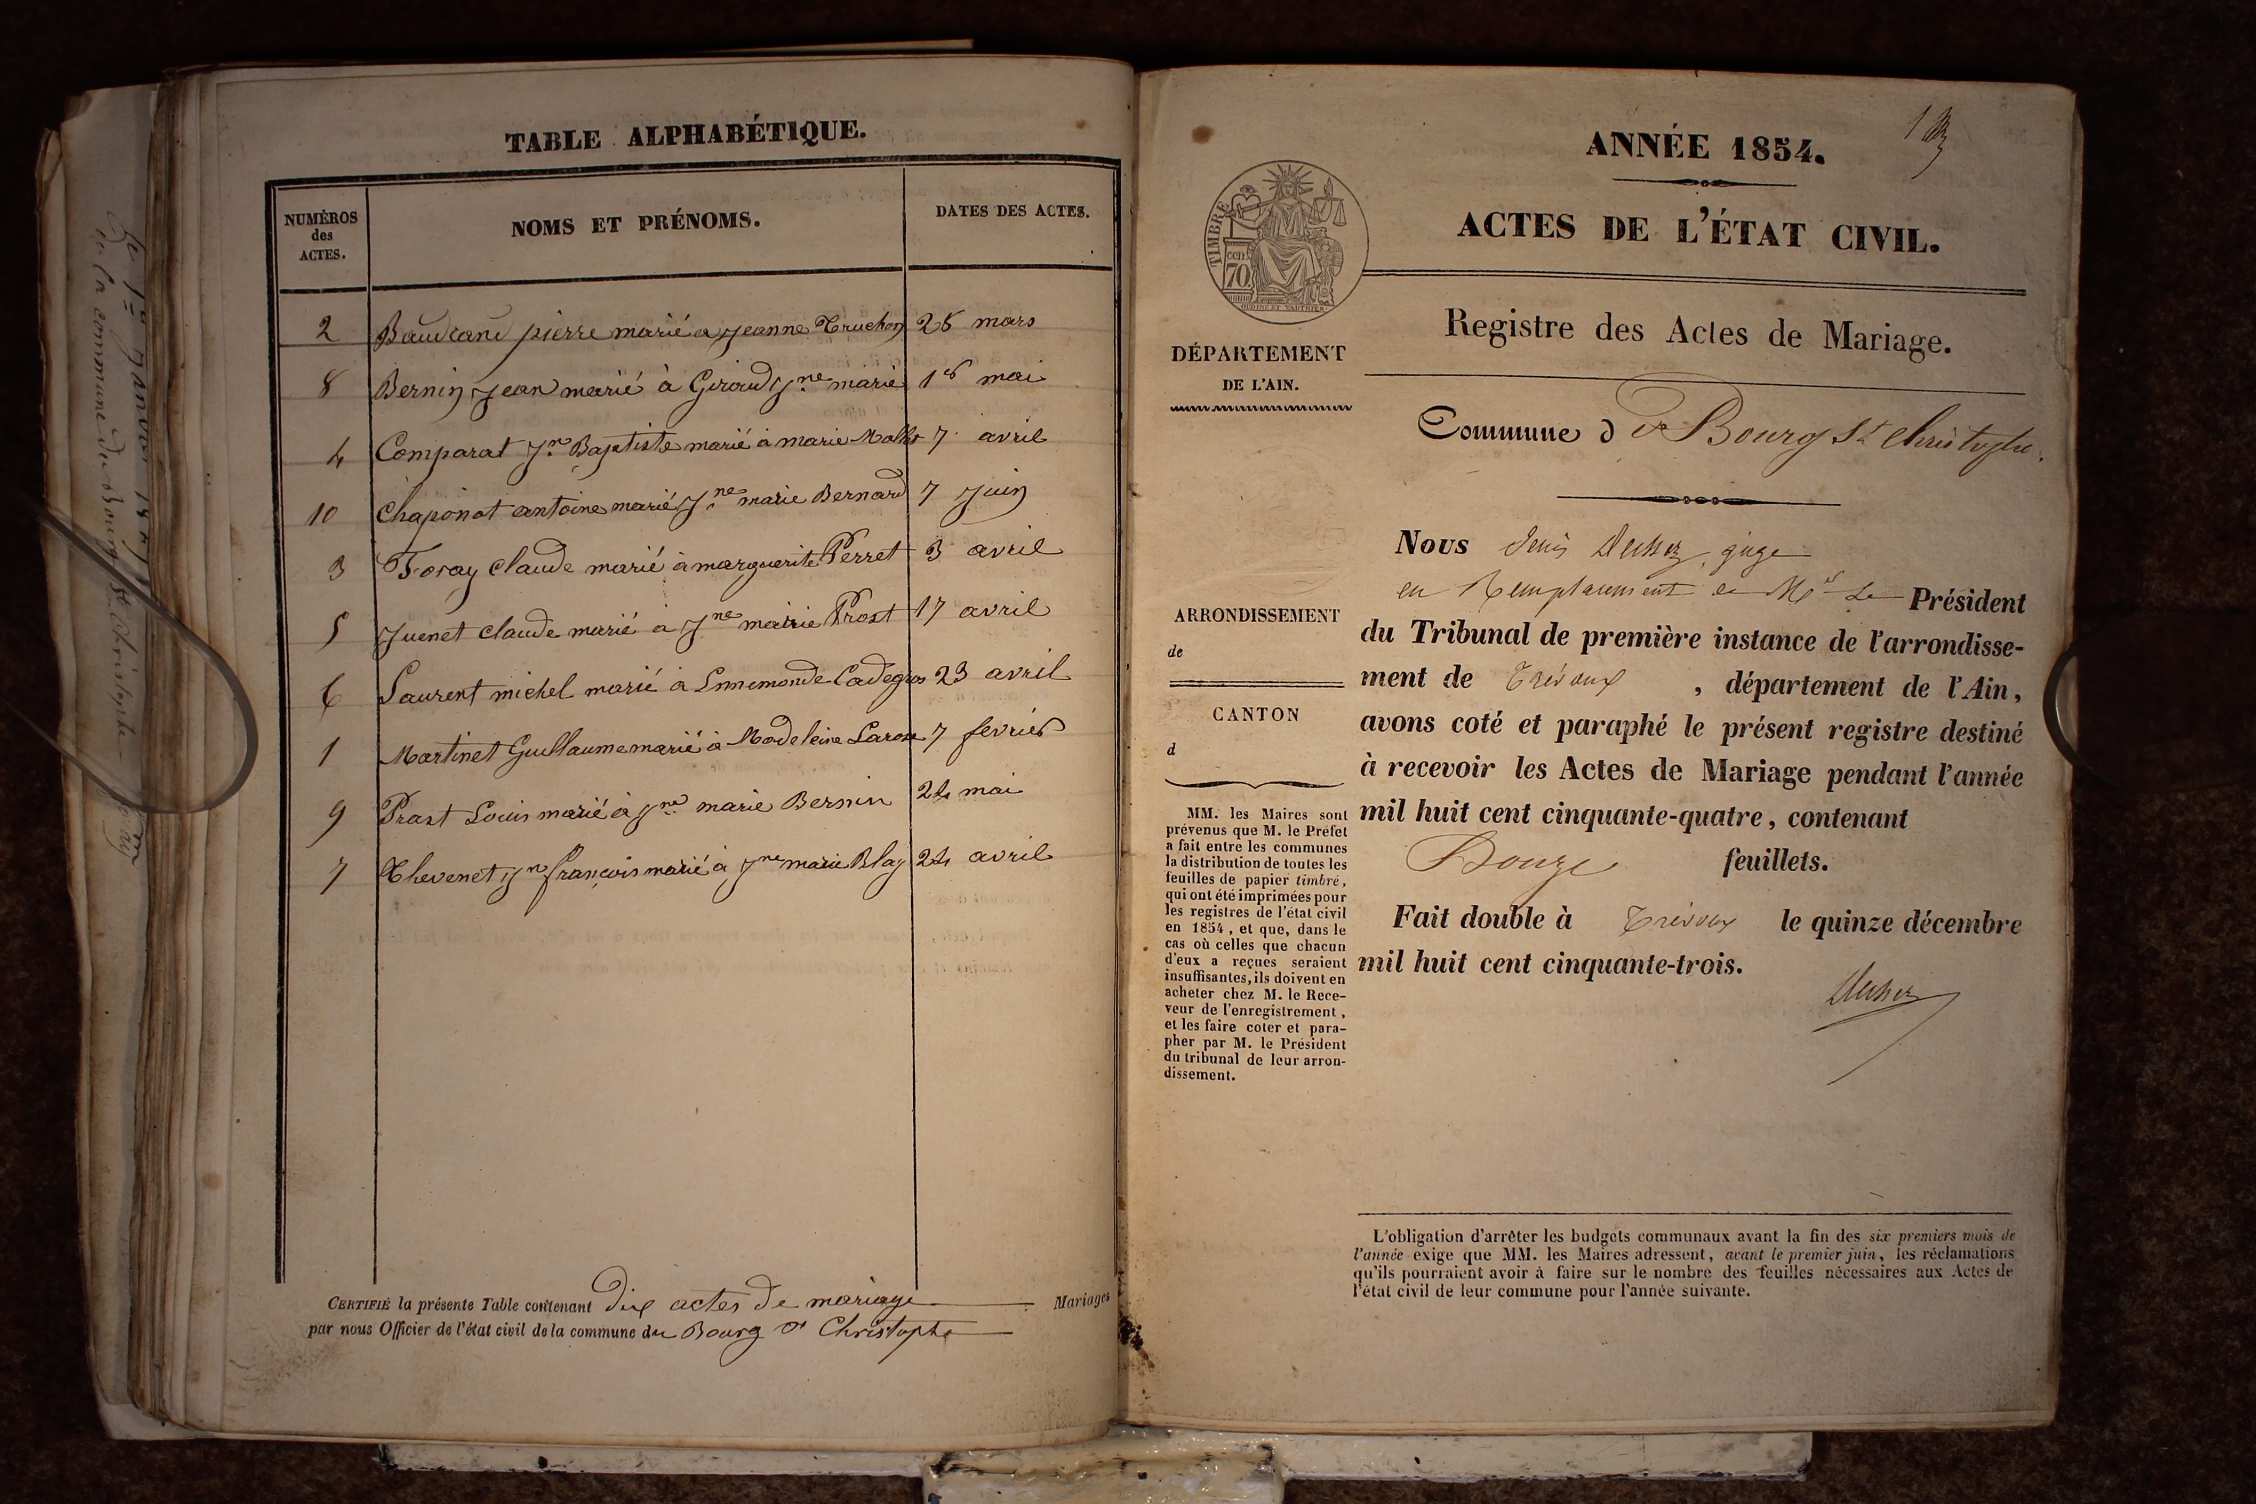 TABLE ALPHABÉTIQUE.
NUMÉROS des ACTES. NOMS ET PRÉNOMS. DATES DES ACTES.
2 Baudrand pierre marié a Jeanne Truchon 28 mars
8 Bernin Jean marié à Giroud Jne marie 1er mai
4 Comparat Jn Baptiste marié à marie 7 avril
10 Chaponot antoine marié Jne marie Bernard 7 Juin
3 Foray Claude marié à marguerite Perret 3 avril
5 Juenet claude marié a Jne marie Prost 17 avril
6 Laurent michel marié a Ennemonde Cadegros 23 avril
1 Martinet Guillaume marié à Madeleine 7 fevrier
9 Prost Louis marié à Jne marie Bernin 24 mai
7 Thevenet Jn françois marié à Jne marie Blay 24 avril
CERTIFIÉ la présente Table contenant dix actes de mariage Mariages
par nous Officier de l'état civil de la commune du Bourg St Christophe
1
ANNÉE 1854.
ACTES DE L'ÉTAT CIVIL.
TIMBRE
cent 70
Registre des Actes de Mariage.
DÉPARTEMENT
DE L'AIN.
Commune d de Bourg St Christophe.
Nous Denis juge
en Remplacement de Mr Le Président
ARRONDISSEMENT
de
CANTON
d
du Tribunal de première instance de l'arrondisse-
ment de Trévoux , département de l'Ain,
avons coté et paraphé le présent registre destiné
à recevoir les Actes de Mariage pendant l'année
mil huit cent cinquante-quatre, contenant
Douze feuillets.
Fait double à Trévoux le quinze décembre
mil huit cent cinquante-trois.
MM. les Maires sont
prévenus que M. le Préfet
a fait entre les communes
la distribution de toutes les
feuilles de papier timbré,
qui ont été imprimées pour
les registres de l'état civil
en 1854, et que, dans le
cas où celles que chacun
d'eux a reçues seraient
insuffisantes, ils doivent en
acheter chez M. le Rece-
veur de l'enregistrement,
et les faire coter et para-
pher par M. le Président
du tribunal de leur arron-
dissement.
L'obligation d'arrêter les budgets communaux avant la fin des six premiers mois de
l'année exige que MM. les Maires adressent, avant le premier juin, les réclamations
qu'ils pourraient avoir à faire sur le nombre des feuilles nécessaires aux Actes de
l'état civil de leur commune pour l'année suivante.